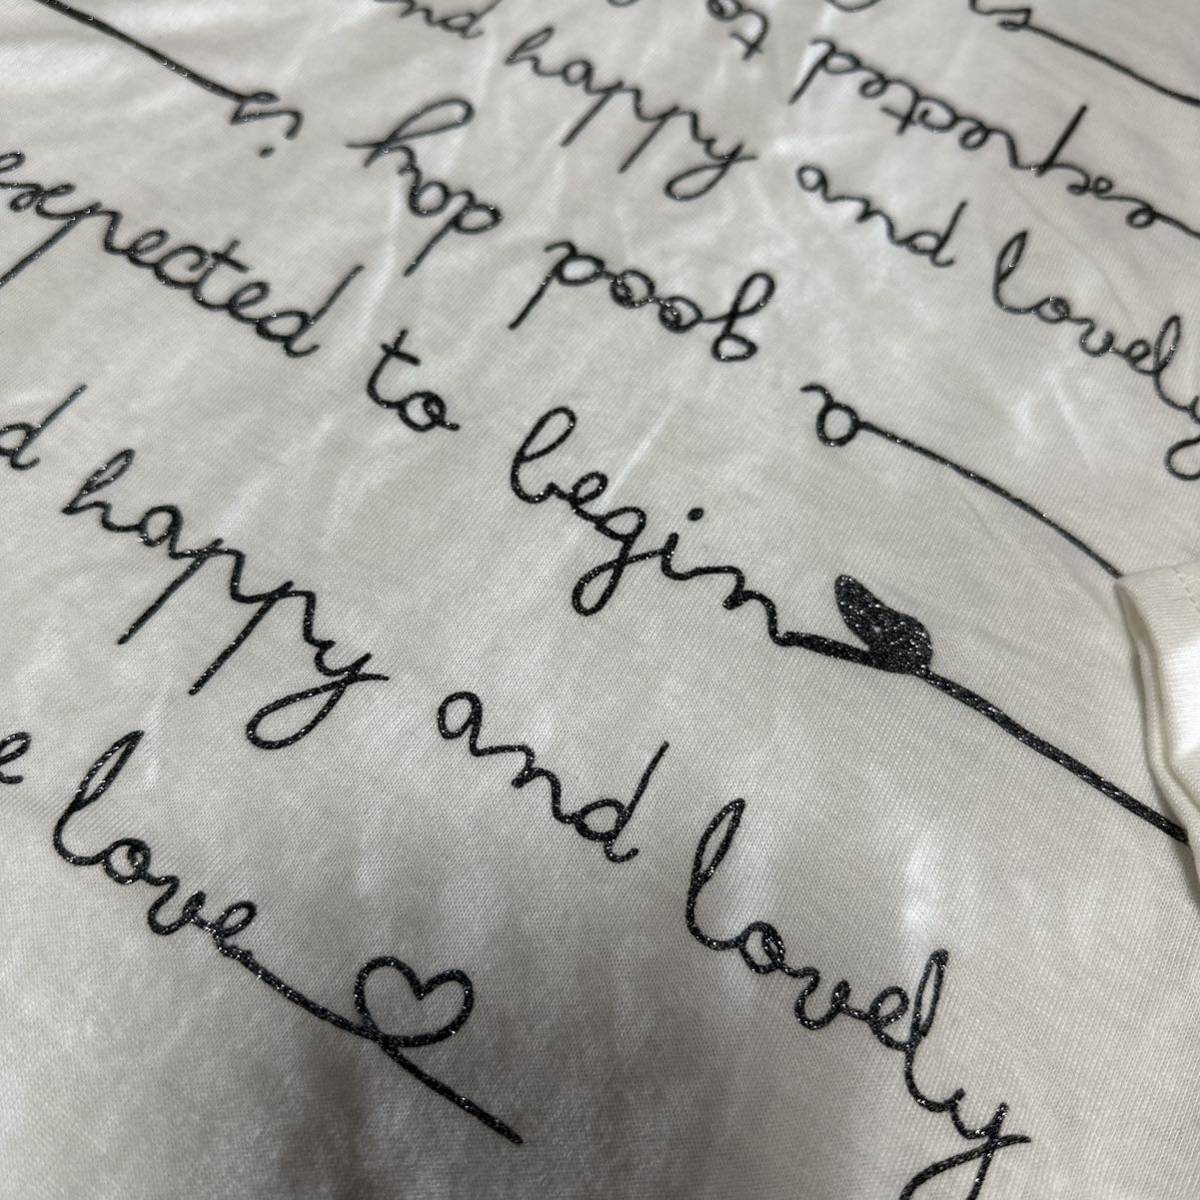 is
expected to
nd happy and lovely
a good day is
expected to begin
d happy and lovely
e love